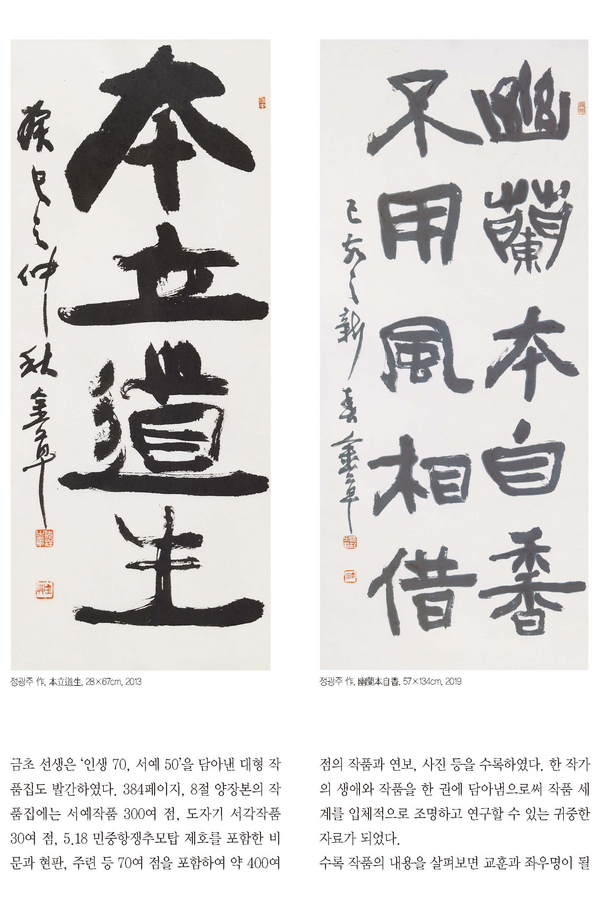 本立道生
癸巳之仲秋 金草
幽蘭本自香
不用風相借
己亥之新春 金草
정광주 作, 本立道生, 28×67cm, 2013
정광주 作, 幽蘭本自香, 57×134cm, 2019
금초 선생은 ‘인생 70, 서예 50’을 담아낸 대형 작
품집도 발간하였다. 384페이지, 8절 양장본의 작
품집에는 서예작품 300여 점, 도자기 서각작품
30여 점, 5.18 민중항쟁추모탑 제호를 포함한 비
문과 현판, 주련 등 70여 점을 포함하여 약 400여
점의 작품과 연보, 사진 등을 수록하였다. 한 작가
의 생애와 작품을 한 권에 담아냄으로써 작품 세
계를 입체적으로 조명하고 연구할 수 있는 귀중한
자료가 되었다.
수록 작품의 내용을 살펴보면 교훈과 좌우명이 될